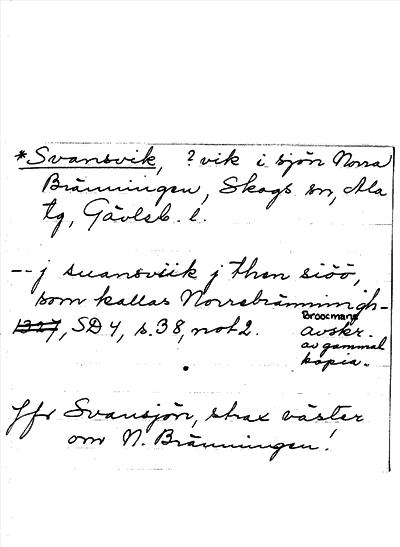 *Svansvik, ? vik i sjön Norra
Bränningen, Skogs sn, Ala
tg, Gävleb. l.
-- j suansviik j then siöö,
som kallas Norrebränningh-
1327, SD 4, s. 38, not 2. Broocmans
avskr.
av gammal
kopia.
Jfr Svansjön, strax väster
om N. Bränningen!